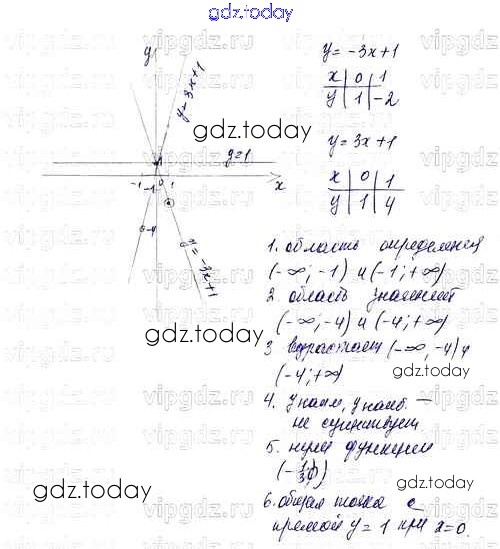 gdz.today
y
y = 3x+1
y=1
x
-1
0
1
-1
-4
y = -3x+1
y = -3x+1
x | 0 | 1
y | 1 | -2
y = 3x+1
x | 0 | 1
y | 1 | 4
gdz.today
1. область определения
(-∞; -1) и (-1; +∞)
2 область значений
(-∞; -4) и (-4; +∞)
3 возрастает (-∞, -4) и
(-4; +∞)
gdz.today
gdz.today
4. y наим, y наиб. —
не существует
5. нули функции
gdz.today
6. общая точка с
прямой y = 1 при x=0.